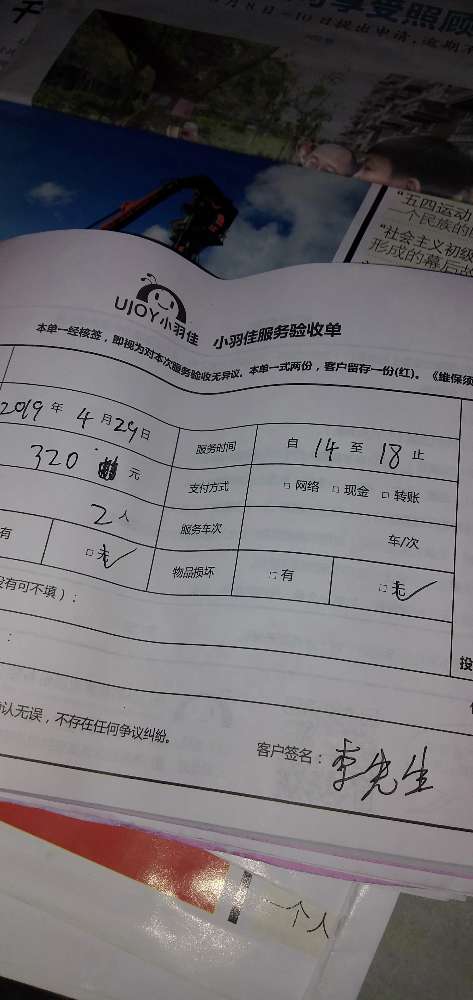 享受照顾
月8日-10日提出申请,逾期
"五四运动
一个民族的
"社会主义初级
形成的幕后
UJOY小羽佳 小羽佳服务验收单
本单一经核签,即视为对本次服务验收无异议。本单一式两份,客户留存一份(红)。《维保须
2019年4月29日 服务时间 自14至18止
320 元 支付方式 □网络 □现金 □转账
2人 服务车次 车/次
有 □无✓ 物品损坏 □有 □无✓
没有可不填):
:
投
认无误,不存在任何争议纠纷。
客户签名:李先生
一个人